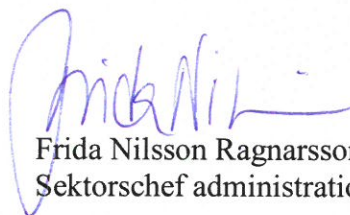 Frida Nil
Frida Nilsson Ragnarsson
Sektorschef administratio